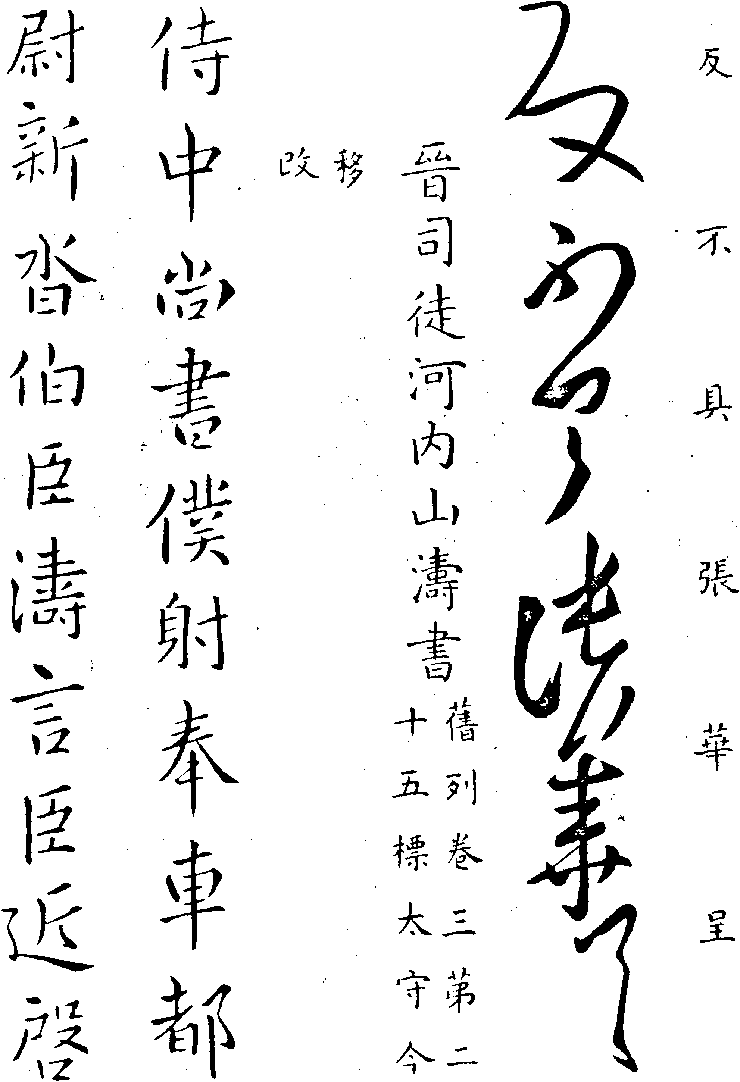 反不具張華呈
反不具張華呈
晉司徒河内山濤書
舊列卷三第二
十五標太守今
移
改
侍中尚書僕射奉車都
尉新沓伯臣濤言臣近啓